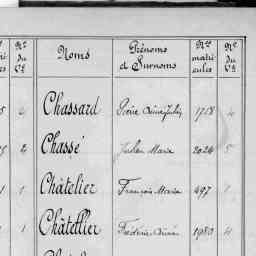 Nos du Vt Noms Prénoms et Surnoms Nos matricules Nos du Vt
Chassard Pierre 1718 4
2 Chassé Julien Marie 2024 5
1 Châtelier François Marie 497 1
1 Châtellier Frédéric 1980 4